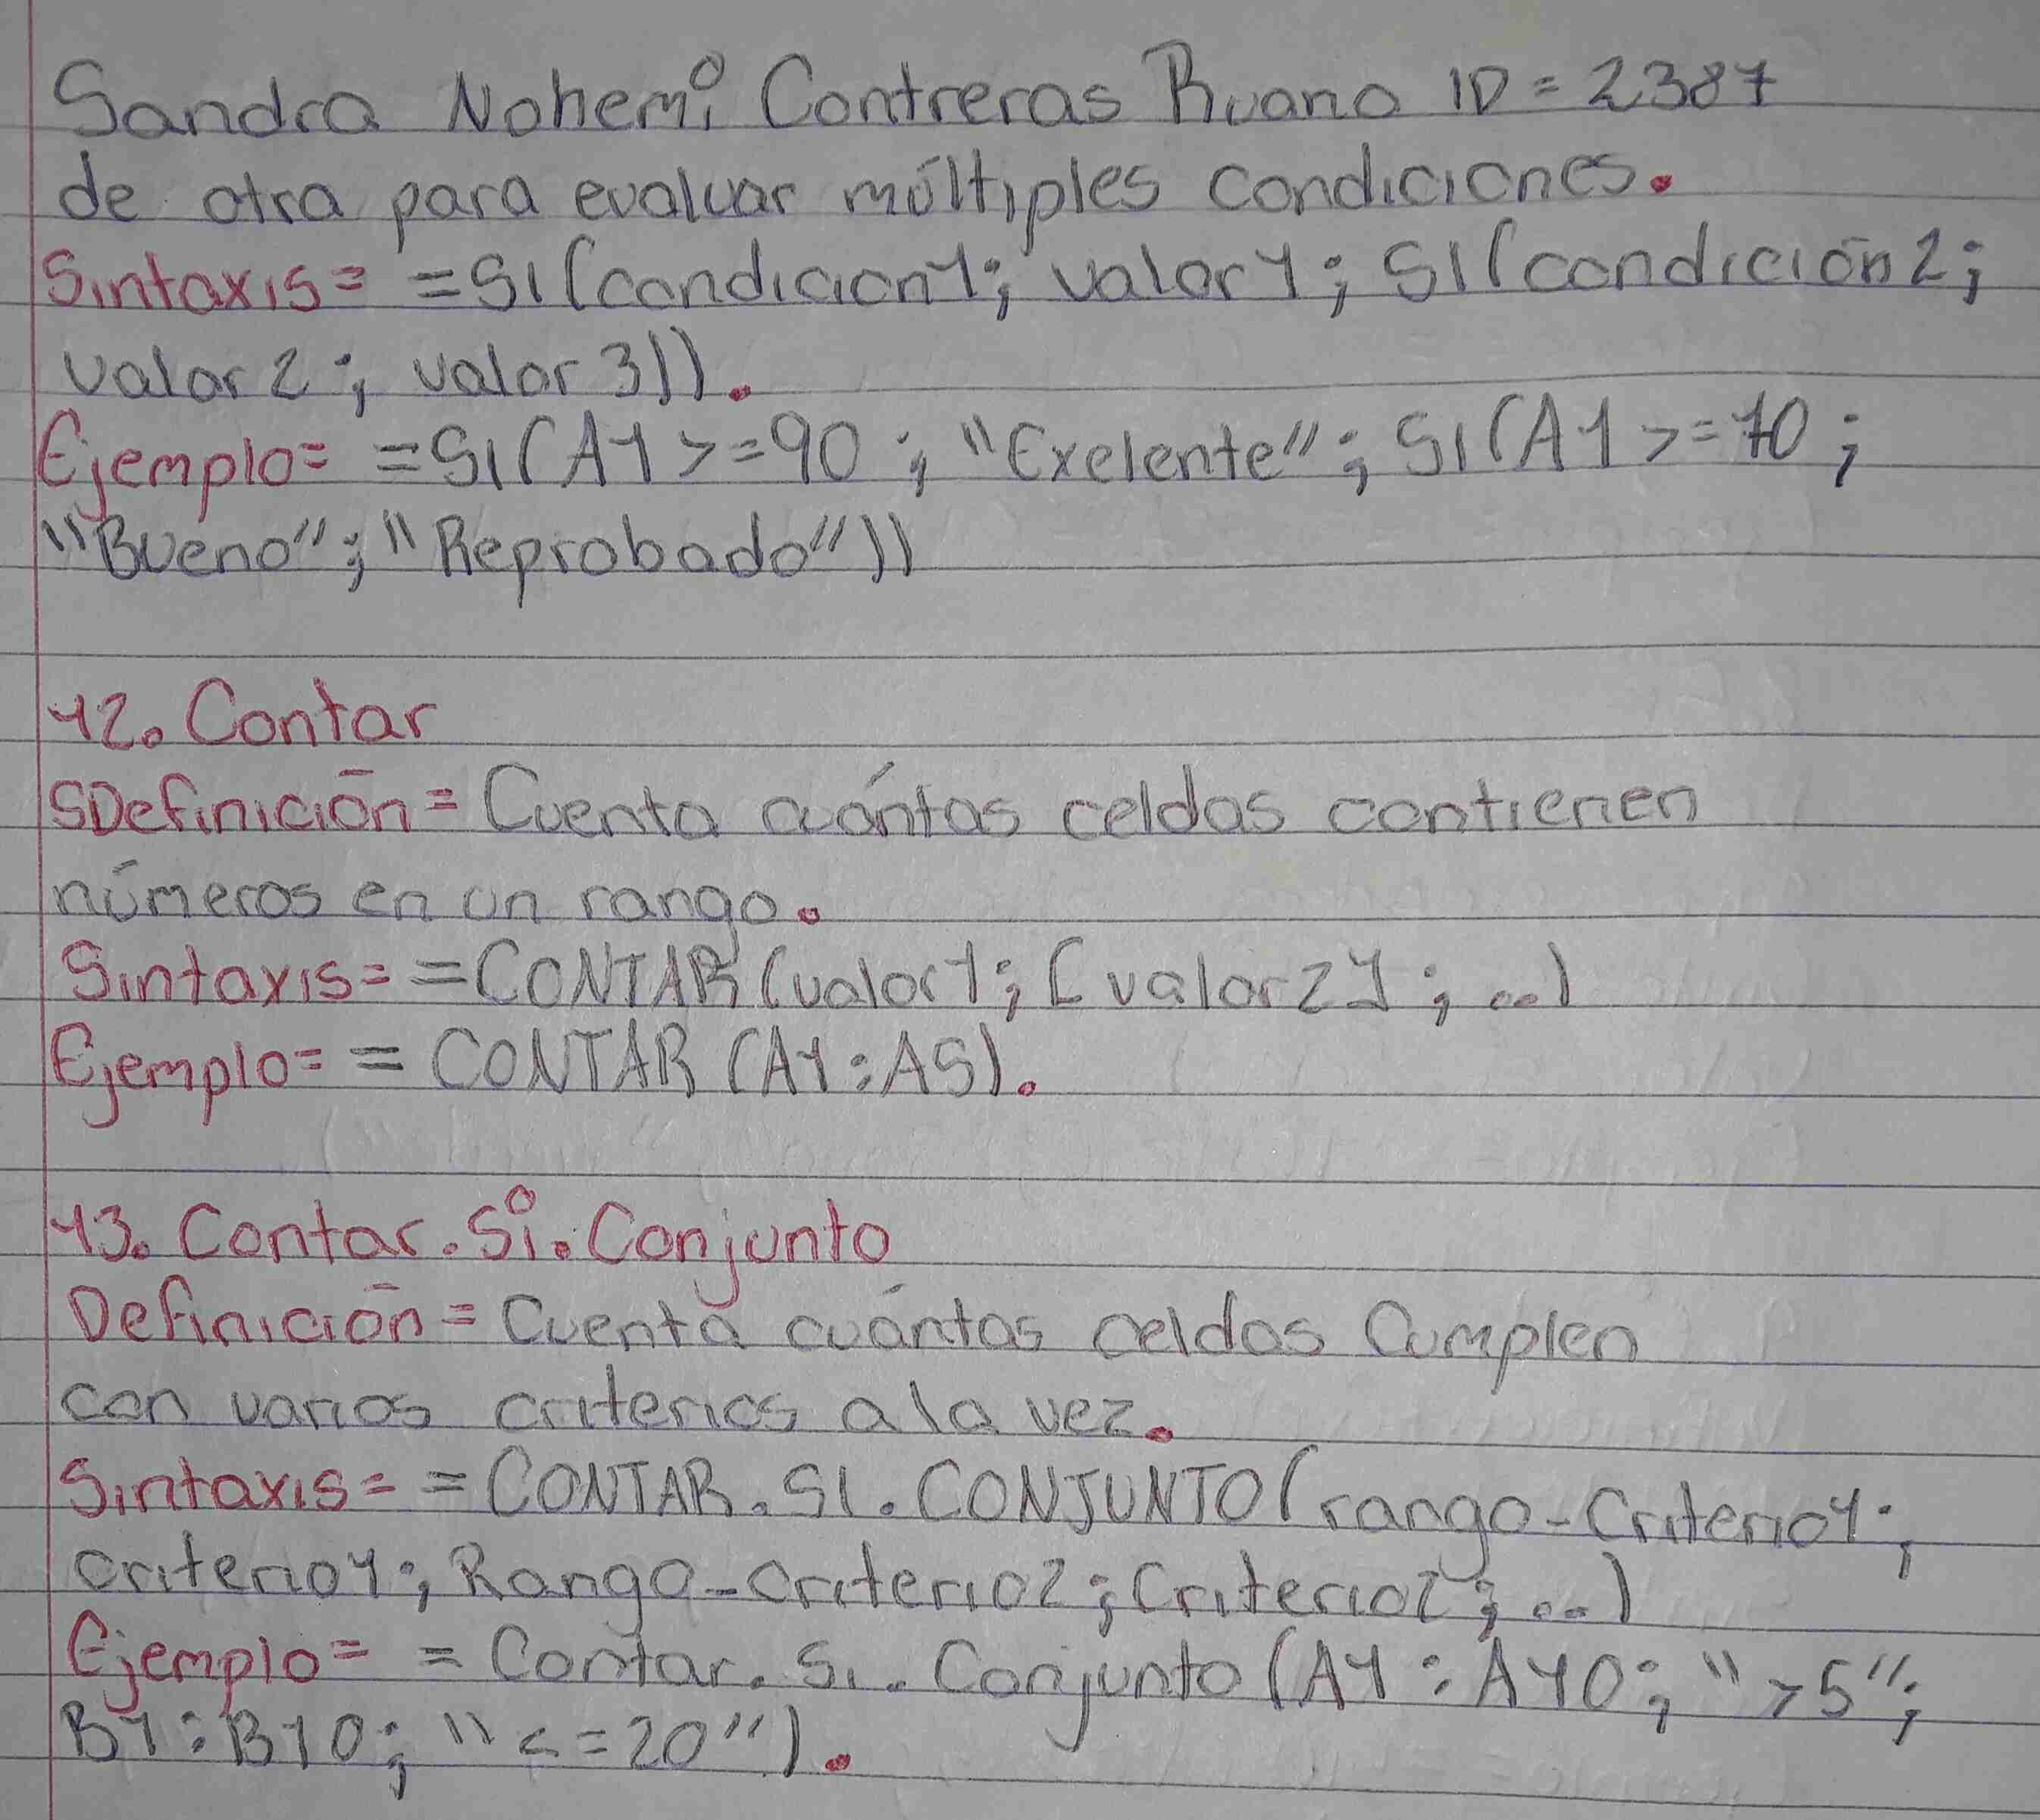 Sandra Nohemi Contreras Ruano ID = 2387
de otra para evaluar múltiples condiciones.
Sintaxis= =SI(condición1; valor1; SI(condición2;
valor2; valor3)).
Ejemplo= =SI(A1>=90; "Exelente"; SI(A1>=70;
"Bueno"; "Reprobado"))
12. Contar
SDefinición= Cuenta cuántas celdas contienen
números en un rango.
Sintaxis= =CONTAR(valor1; [valor2]; ...)
Ejemplo= =CONTAR(A1:A5).
13. Contar.Si.Conjunto
Definición= Cuenta cuántas celdas Cumplen
con varios criterios a la vez.
Sintaxis= =CONTAR.SI.CONJUNTO(rango-Criterio1;
criterio1; Rango-criterio2; Criterio2; ...)
Ejemplo= =Contar.Si.Conjunto(A1:A10; ">5";
B1:B10; "<=20").